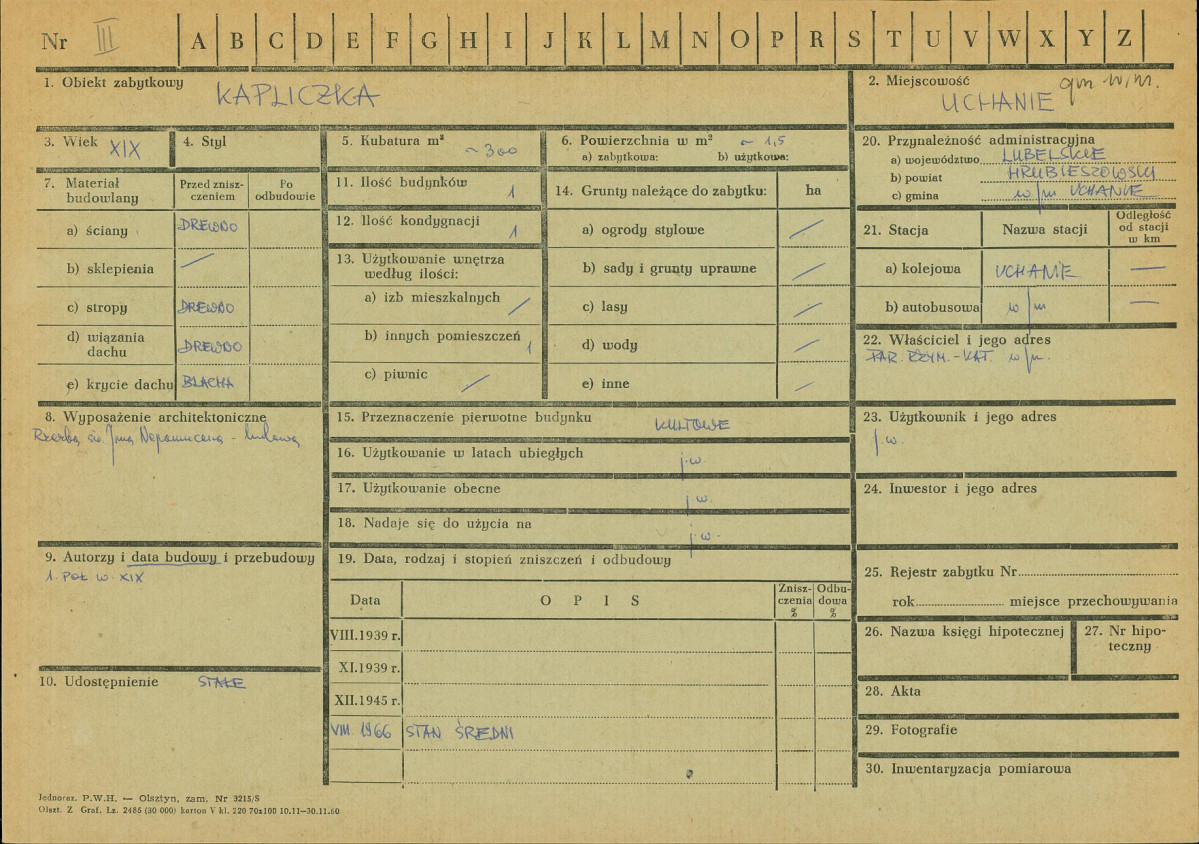 Nr III A B C D E F G H I J K L M N O P R S T U V W X Y Z
1. Obiekt zabytkowy KAPLICZKA
2. Miejscowość gm w/m.
UCHANIE
3. Wiek XIX
4. Styl
5. Kubatura m³ ~300
6. Powierzchnia w m² ~ 1,5
a) zabytkowa: b) użytkowa:
20. Przynależność administracyjna
a) województwo LUBELSKIE
b) powiat HRUBIESZOWSKI
c) gmina w/m UCHANIE
7. Materiał budowlany
Przed zniszczeniem
Po odbudowie
a) ściany DREWNO
b) sklepienia /
c) stropy DREWNO
d) wiązania dachu DREWNO
e) krycie dachu BLACHA
11. Ilość budynków 1
12. Ilość kondygnacji 1
13. Użytkowanie wnętrza
według ilości:
a) izb mieszkalnych /
b) innych pomieszczeń 1
c) piwnic /
14. Grunty należące do zabytku: ha
a) ogrody stylowe /
b) sady i grunty uprawne /
c) lasy /
d) wody /
e) inne /
21. Stacja Nazwa stacji Odległość od stacji w km
a) kolejowa UCHANIE —
b) autobusowa w/m —
22. Właściciel i jego adres
PAR. RZYM.-KAT. w/m.
8. Wyposażenie architektoniczne
Rzeźba św. Jana Nepomucena - ludowa
15. Przeznaczenie pierwotne budynku KULTOWE
16. Użytkowanie w latach ubiegłych j.w.
17. Użytkowanie obecne j.w.
18. Nadaje się do użycia na j.w.
23. Użytkownik i jego adres
j.w.
24. Inwestor i jego adres
9. Autorzy i data budowy i przebudowy
1. POŁ W. XIX
19. Data, rodzaj i stopień zniszczeń i odbudowy
Data OPIS Zniszczenia % Odbudowa %
VIII.1939 r.
XI.1939 r.
XII.1945 r.
VIII. 1966 STAN ŚREDNI
10. Udostępnienie STAŁE
25. Rejestr zabytku Nr
rok miejsce przechowywania
26. Nazwa księgi hipotecznej
27. Nr hipoteczny
28. Akta
29. Fotografie
30. Inwentaryzacja pomiarowa
Jednoraz. P.W.H. — Olsztyn, zam. Nr 3215/S
Olszt. Z Graf. Lz. 2485 (30 000) karton V kl. 220 70x100 10.11—30.11.60